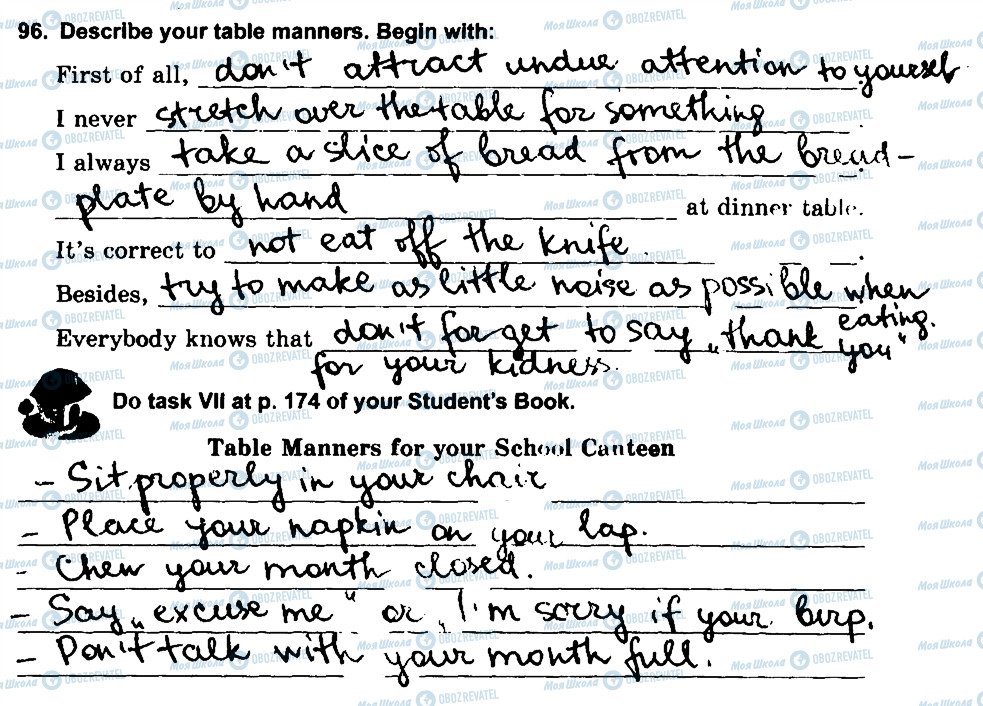 96. Describe your table manners. Begin with:
First of all, don't attract undue attention to yoursel
I never stretch over the table for something.
I always take a slice of bread from the bread-
plate by hand at dinner table.
It's correct to not eat off the knife.
Besides, try to make as little noise as possible when
eating.
Everybody knows that don't forget to say „thank you"
for your kidness.
Do task VII at p. 174 of your Student's Book.
Table Manners for your School Canteen
- Sit properly in your chair
- Place your napkin on your lap.
- Chew your month closed.
- Say „excuse me" or, I'm sorry if your burp.
- Don't talk with your month full.
МояШкола OBOZREVATEL